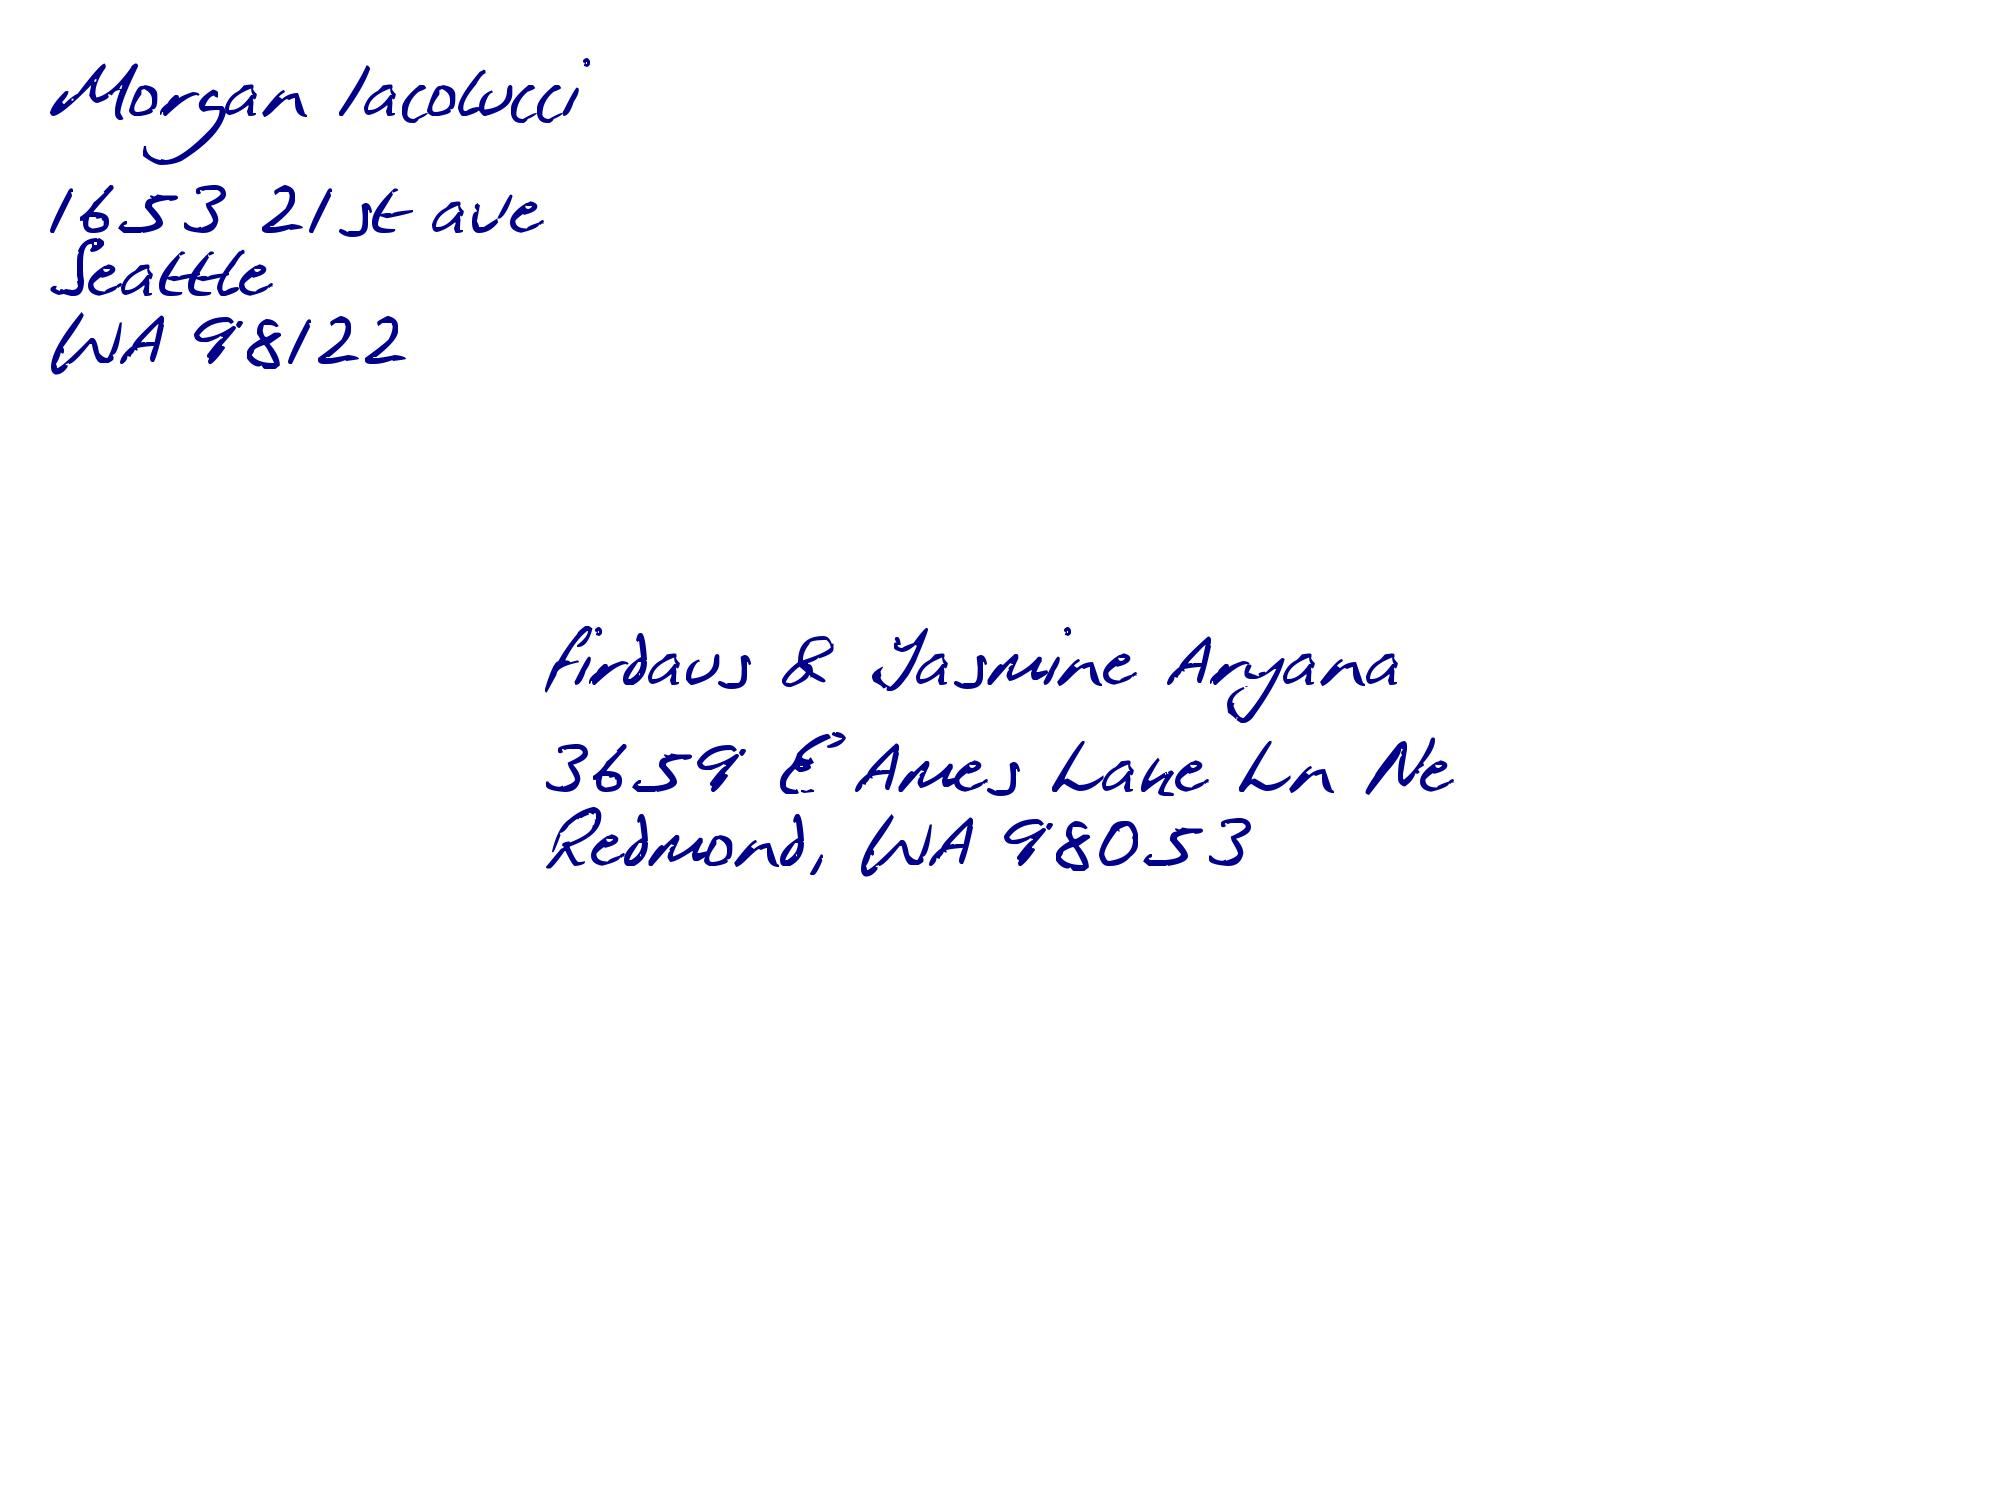 Morgan Iacolucci
1653 21st ave
Seattle
WA 98122
Firdaus & Yasmine Aryana
3659 E Ames Lake Ln Ne
Redmond, WA 98053